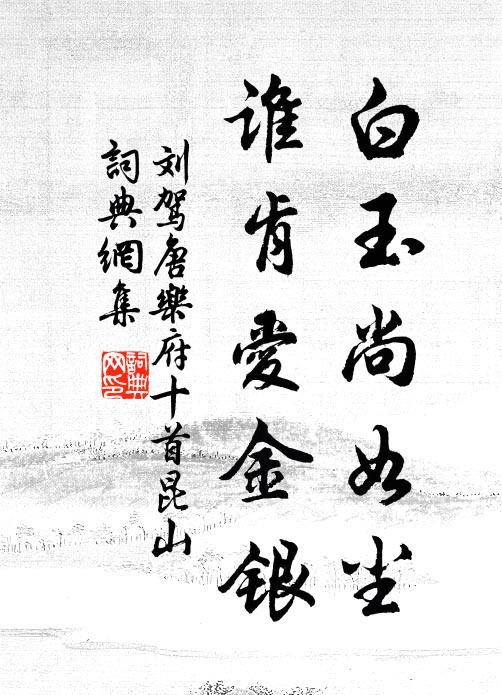 白玉尚如尘
谁肯爱金银
刘驾唐樂府十首昆山
詞典網集
詞典网印